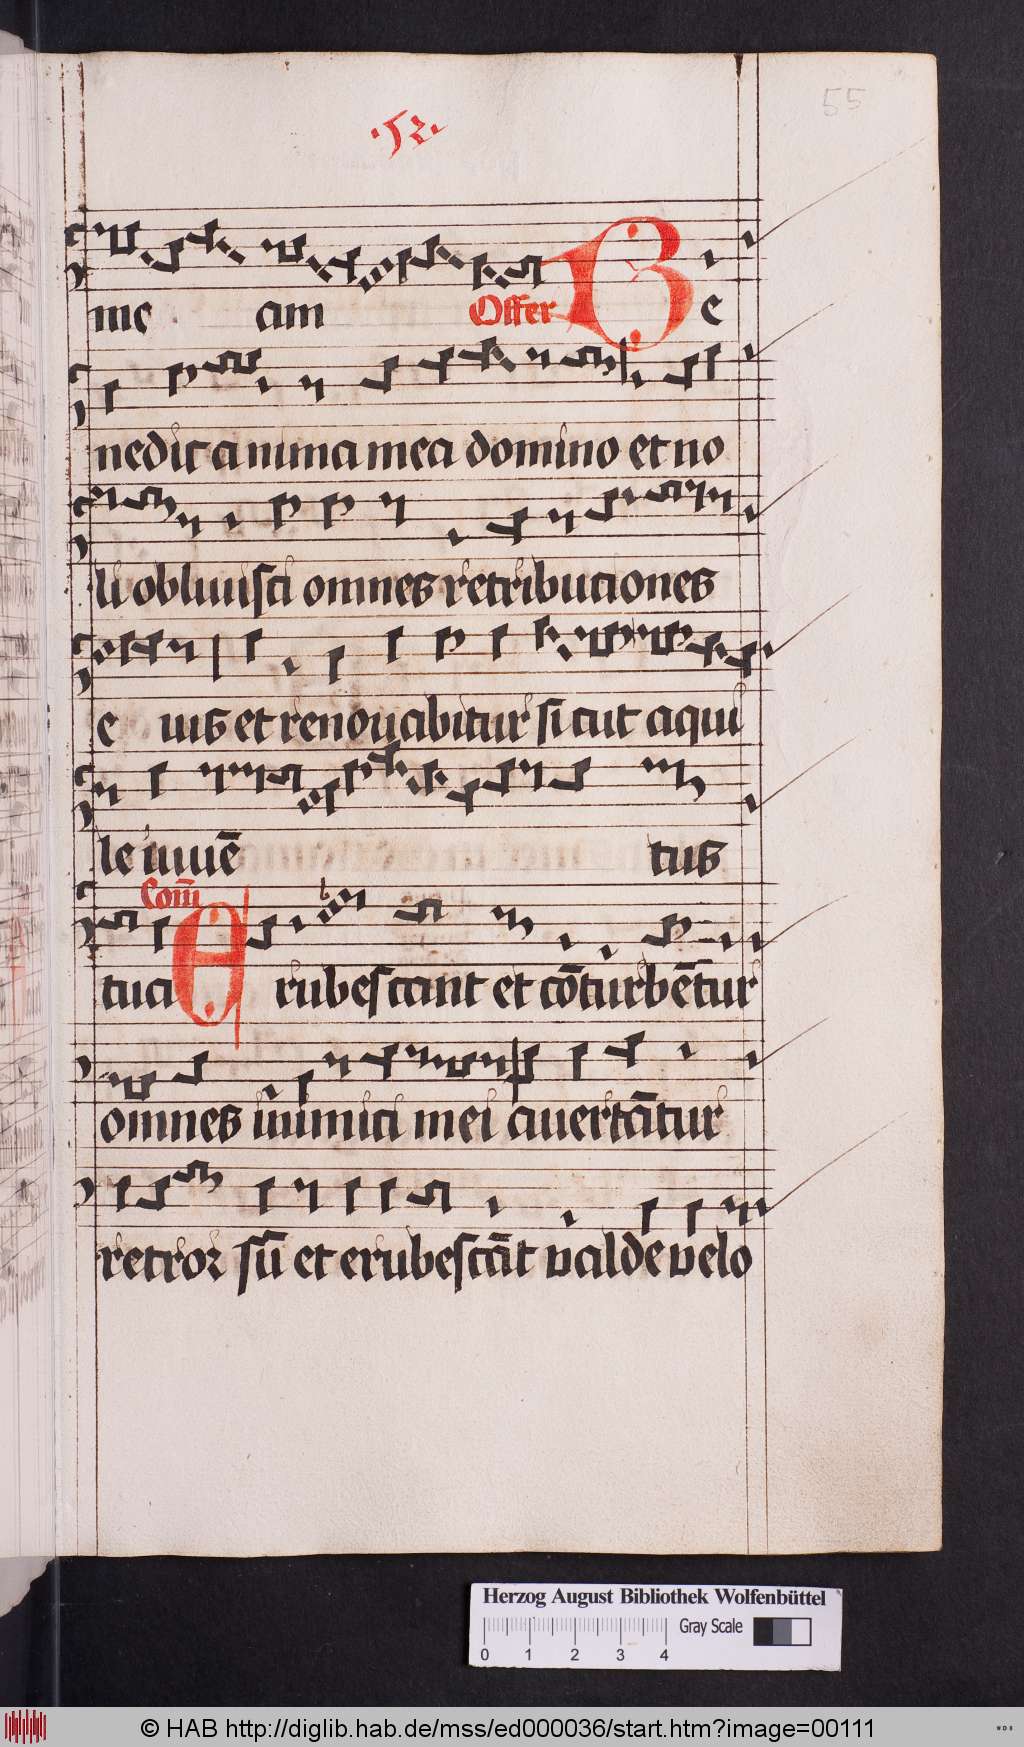 .52.
55
me am Offer Be
nedic anima mea domino et no
li obliuisci omnes retribuciones
e uis et renouabitur sicut aqui
le iuuē tus
Com̄
tua Erubescant et cōturbētur
omnes inimici mei auertātur
retror sū et erubescāt valde velo
Herzog August Bibliothek Wolfenbüttel
Gray Scale
0 1 2 3 4
© HAB http://diglib.hab.de/mss/ed000036/start.htm?image=00111